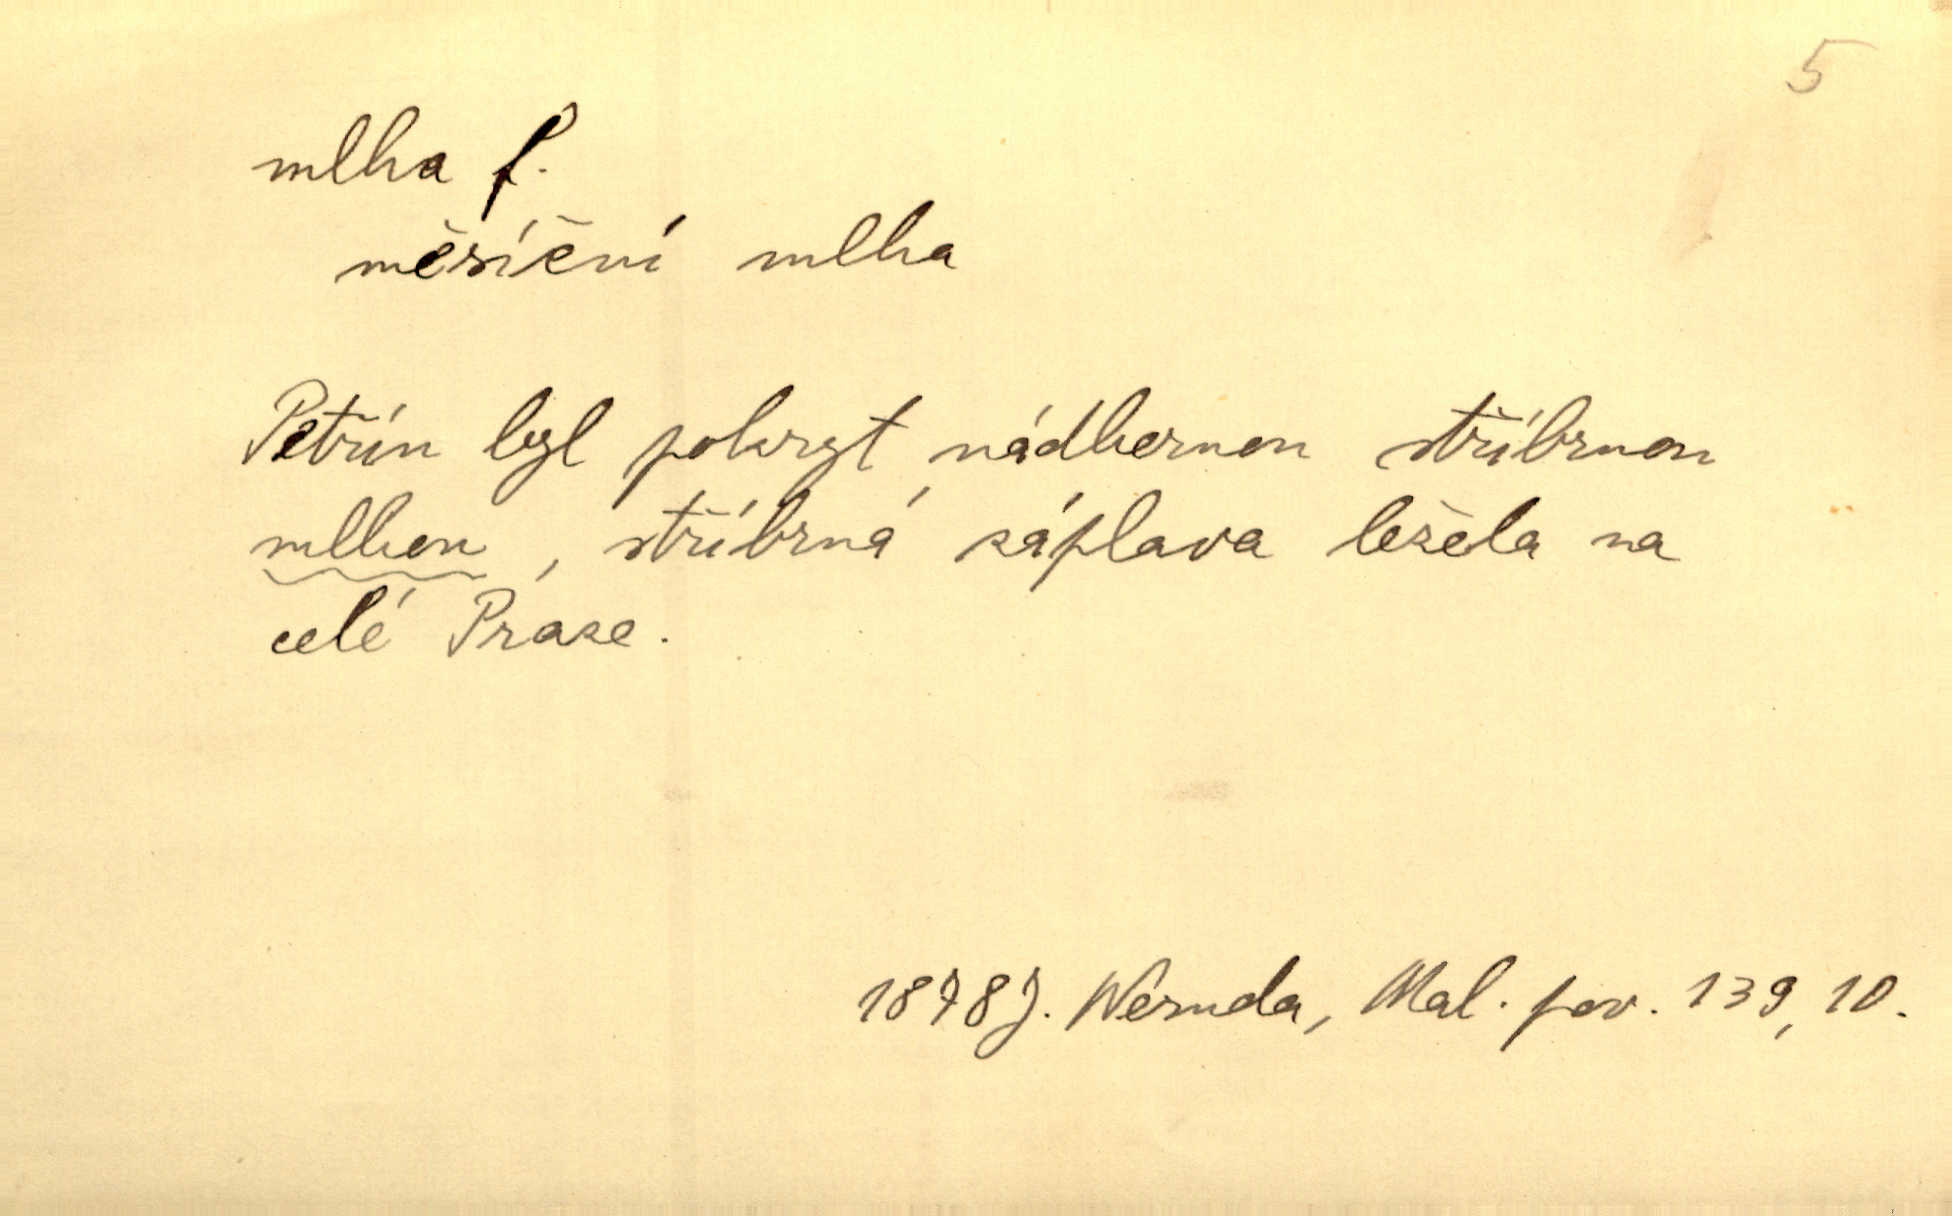 5
mlha f.
měsíční mlha
Petřín byl pokryt nádhernou stříbrnou
mlhou, stříbrná záplava ležela na
celé Praze.
1878 J. Neruda, Mal. pov. 139, 10.